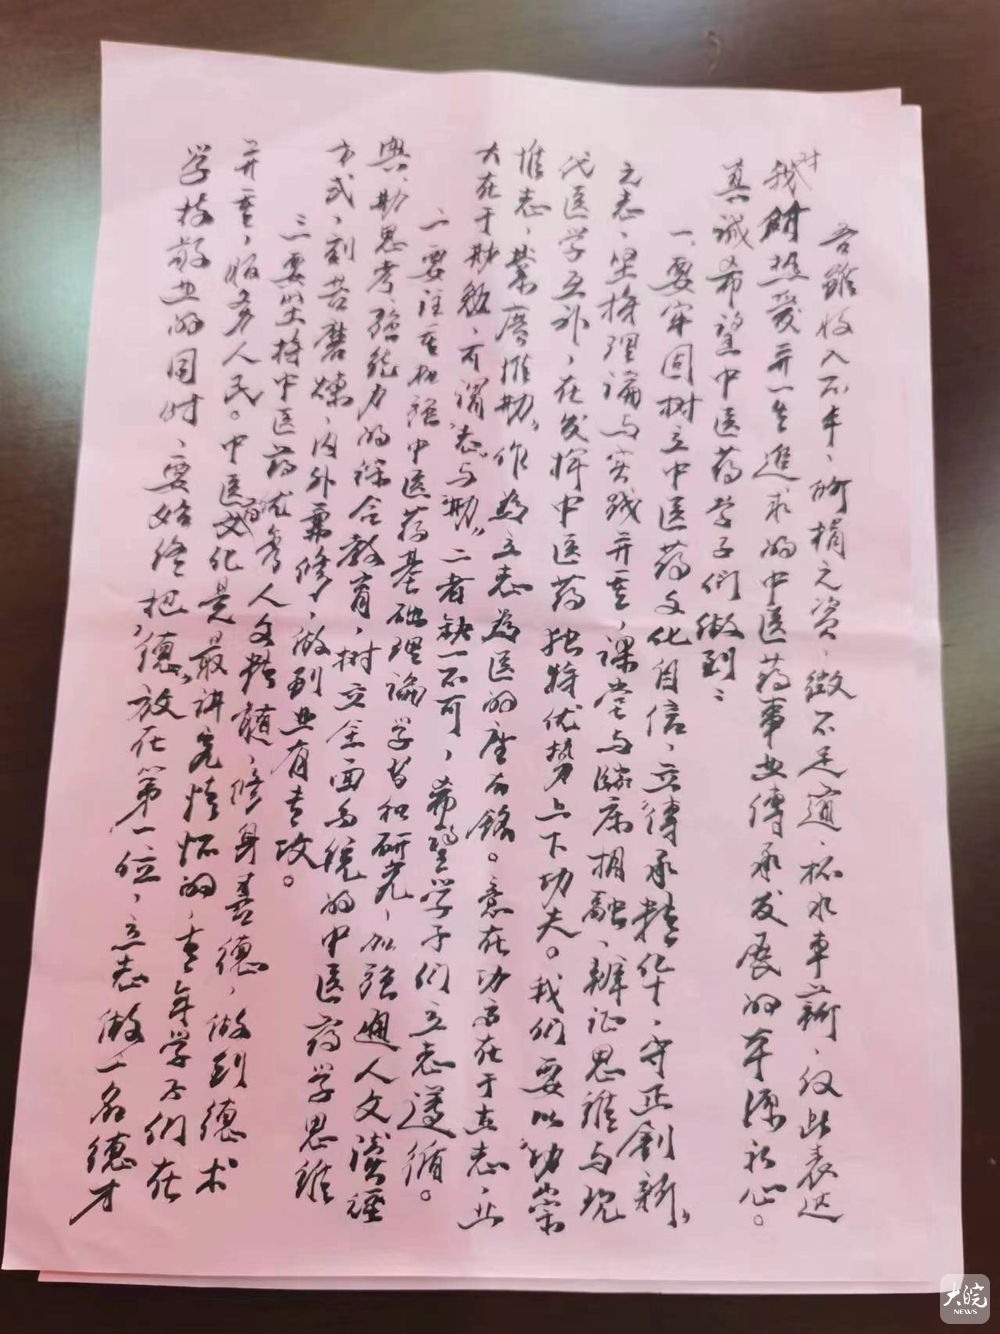 吾虽收入不丰，所捐之资，微不足道，杯水车薪，仅此表达
我对热爱并一生追求的中医药事业传承发展的赤源初心。
真诚希望中医药学子们做到：
一、要牢固树立中医药文化自信，立传承精华，守正创新，
之志，坚持理论与实践并重，课堂与临床相融，辨证思维与现
代医学互补，在发挥中医药独特优势上下功夫。我们要以“功崇
惟志，业广惟勤”作为立志为医的座右铭。意在功高在于立志，业
大在于勤勉，所谓“志与勤”二者缺一不可，希望学子们立志遵循。
二、要注重加强中医药基础理论学习和研究，加强通人文读经
典、勤思考、强能力的综合教育，树立全面系统的中医药学思维
方式，刻苦磨炼，内外兼修，做到业有专攻。
三、要坚持中医药优秀人文精髓，修身养德，做到德术
并重，服务人民。中医药文化是最讲究情怀的，青年学子们在
学技敬业的同时，要始终把“德”放在第一位，立志做一名德才
大皖
NEWS